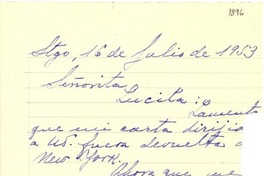 1896
Stgo, 16 de Julio de 1953
Señorita
Lucila:
Lamento
que mi carta dirijia
a US. fuera devuelta a
New York.
Ahora que me